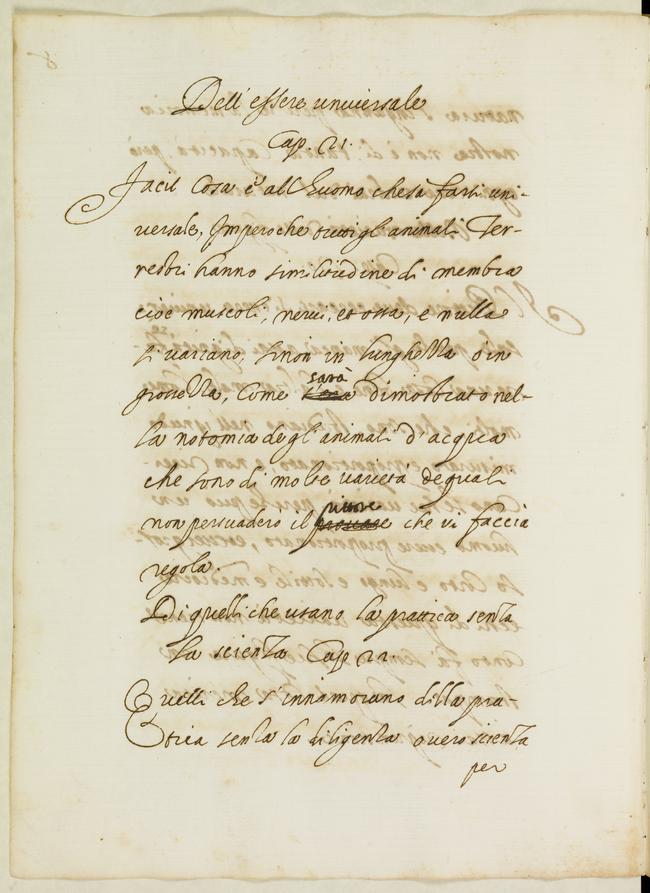 Dell'essere universale
Cap. 21.
Facil Cosa è all'huomo che sà farsi uni-
versale, Imperoche tutti gl'animali Ter-
restri hanno similitudine di membra
cioè muscoli, nervi, et ossa, e nulla
si variano, sinon in lunghezza ò in
grossezza, Come sarà dimostrato nel-
la notomia degl'animali d'acqua
che sono di molte varietà de quali
non persuadero il pittore che vi faccia
regola.
Di quelli che usano la prattica senza
la scienza Cap. 22.
Quelli che s'innamorano della pra
ttica senza la diligenza overo scienza
per